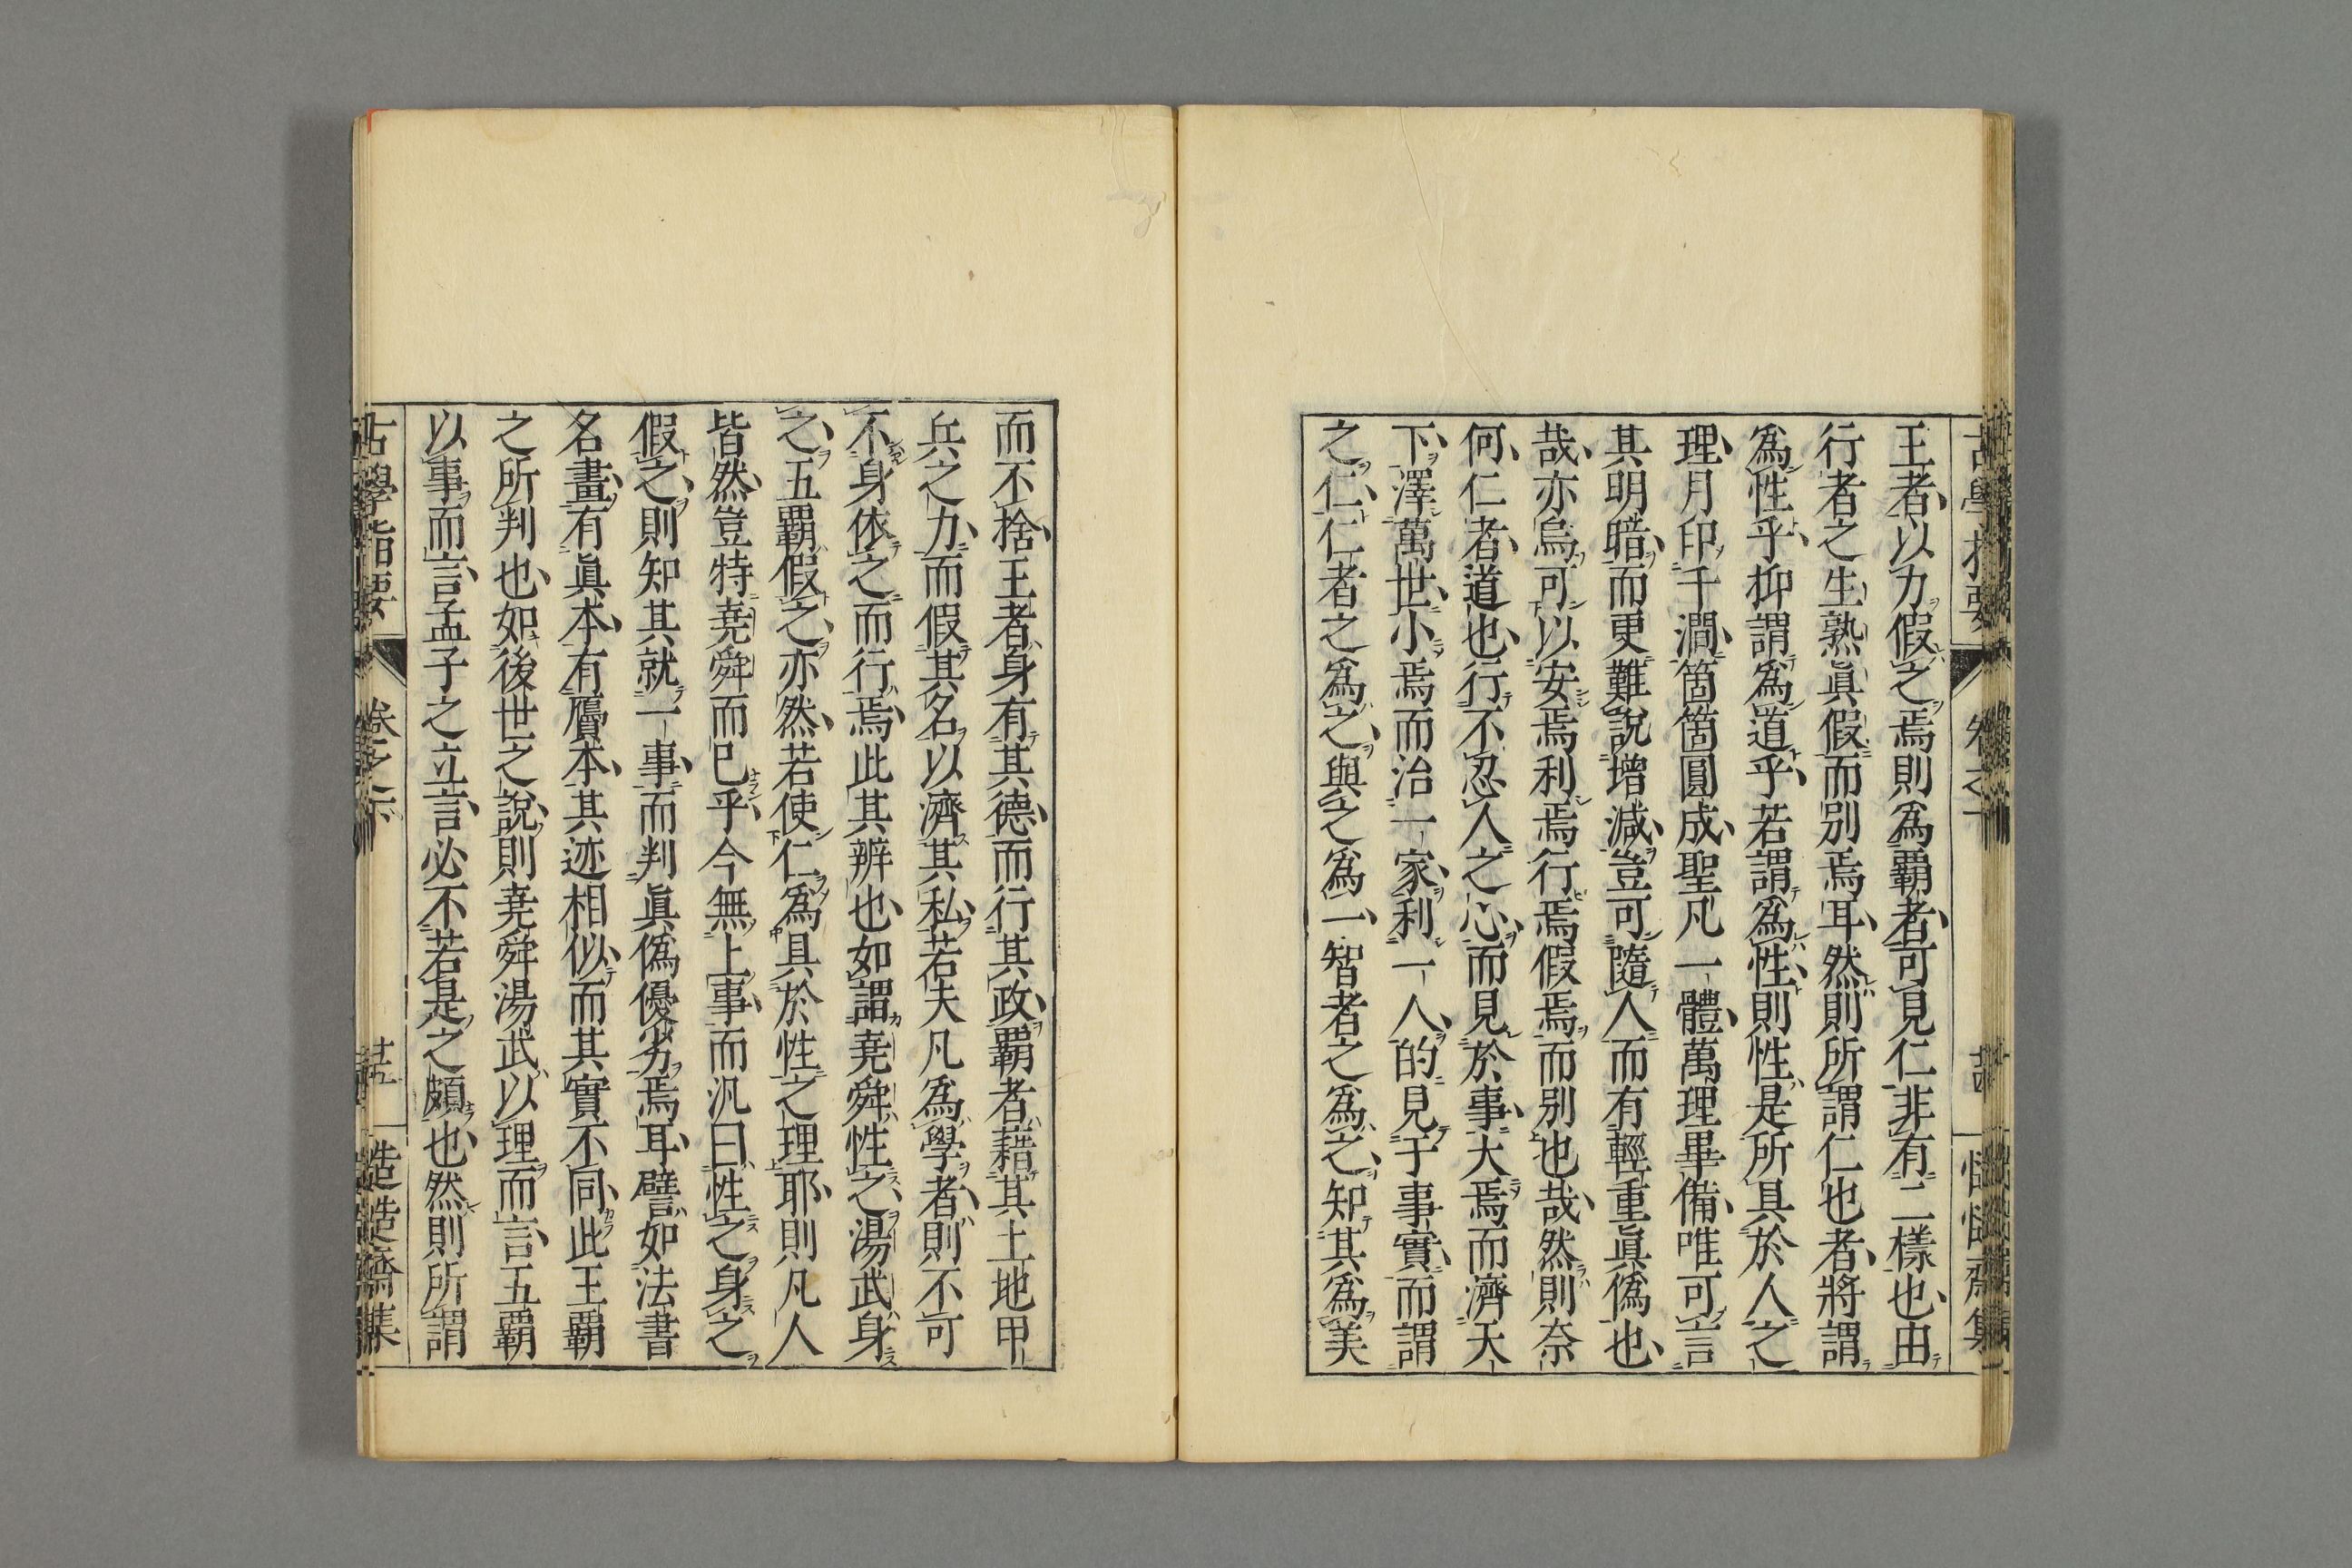 王者、以力假之焉則爲覇者、可見仁非有二樣也、由
行者之生熟眞假而別焉耳、然則所謂仁也者、將謂
爲性乎、抑謂爲道乎、若謂爲性、則性是所具於人之
理、月印千澗、箇箇圓成、聖凡一體、萬理畢備、唯可言
其明暗、而更難說增減、豈可隨人而有輕重眞僞也
哉、亦烏可以安焉利焉行焉假焉而別也哉、然則奈
何、仁者、道也、行不忍人之心、而見於事、大焉而濟天
下、澤萬世、小焉而治一家、利一人、的見于事實、而謂
之仁、仁者之爲之、與之爲一、智者之爲之、知其爲美
而不捨、王者身有其德、而行其政、覇者藉其土地甲
兵之力、而假其名以濟其私、若夫凡爲學者、則不可
不身依之而行焉、此其辨也、如謂堯舜性之、湯武身
之、五覇假之、亦然、若使仁爲具於性之理耶、則凡人
皆然、豈特堯舜而已乎、今無上事、而汎曰性之身之
假之、則知其就一事而判眞僞優劣焉耳、譬如法書
名畫、有眞本、有贋本、其迹相似、而其實不同、此王覇
之所判也、如後世之說、則堯舜湯武、以理而言、五覇
以事而言、孟子之立言、必不若是之頗也、然則所謂
古學指要
卷之下
廿五
慥慥齋集